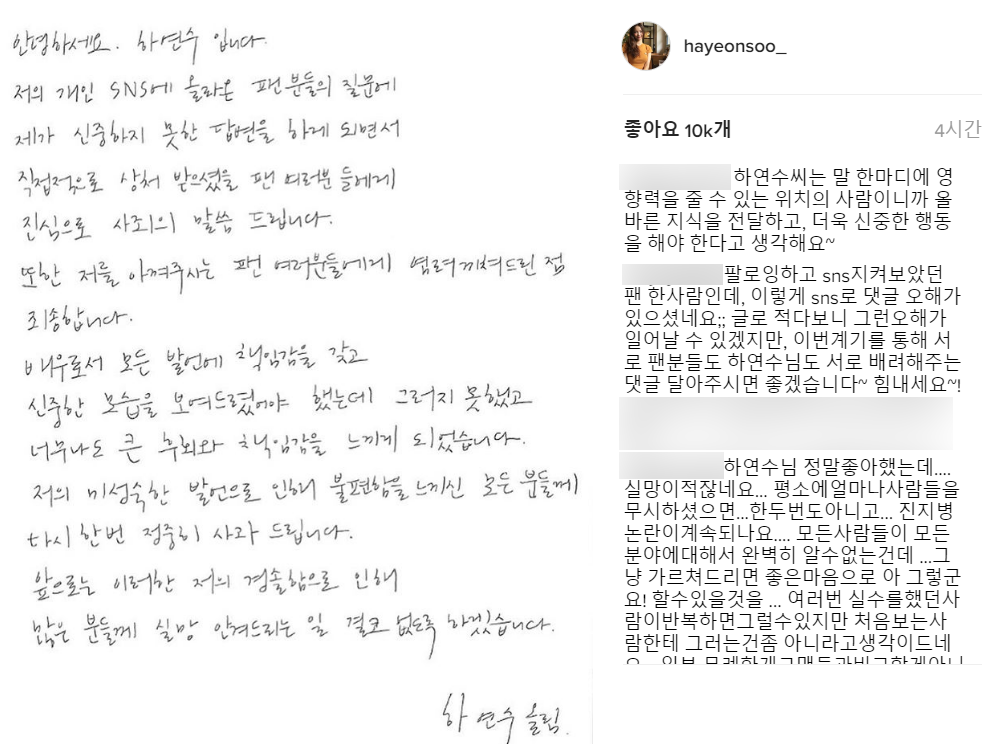 안녕하세요. 하연수 입니다.
저의 개인 SNS에 올라온 팬분들의 질문에
제가 신중하지 못한 답변을 하게 되면서
직접적으로 상처 받으셨을 팬 여러분 들에게
진심으로 사죄의 말씀 드립니다.
또한 저를 아껴주시는 팬 여러분들에게 염려끼쳐드린 점
죄송합니다.
배우로서 모든 발언에 책임감을 갖고
신중한 모습을 보여드렸어야 했는데 그러지 못했고
너무나도 큰 후회와 책임감을 느끼게 되었습니다.
저의 미성숙한 발언으로 인해 불편함을 느끼신 모든 분들께
다시 한번 정중히 사과 드립니다.
앞으로는 이러한 저의 경솔함으로 인해
많은 분들께 실망 안겨드리는 일 결코 없도록 하겠습니다.
하 연수 올림.
hayeonsoo_
좋아요 10k개
4시간
하연수씨는 말 한마디에 영
향력을 줄 수 있는 위치의 사람이니까 올
바른 지식을 전달하고, 더욱 신중한 행동
을 해야 한다고 생각해요~
팔로잉하고 sns지켜보았던
팬 한사람인데, 이렇게 sns로 댓글 오해가
있으셨네요;; 글로 적다보니 그런오해가
일어날 수 있겠지만, 이번계기를 통해 서
로 팬분들도 하연수님도 서로 배려해주는
댓글 달아주시면 좋겠습니다~ 힘내세요~!
하연수님 정말좋아했는데....
실망이적잖네요... 평소에얼마나사람들을
무시하셨으면...한두번도아니고... 진지병
논란이계속되나요.... 모든사람들이 모든
분야에대해서 완벽히 알수없는건데 ...그
냥 가르쳐드리면 좋은마음으로 아 그렇군
요! 할수있을것을 ... 여러번 실수를했던사
람이반복하면그럴수있지만 처음보는사
람한테 그러는건좀 아니라고생각이드네